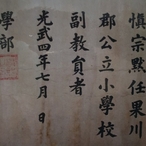 愼宗黙任果川
郡公立小學校
副教員者
光武四年七月 日
學部